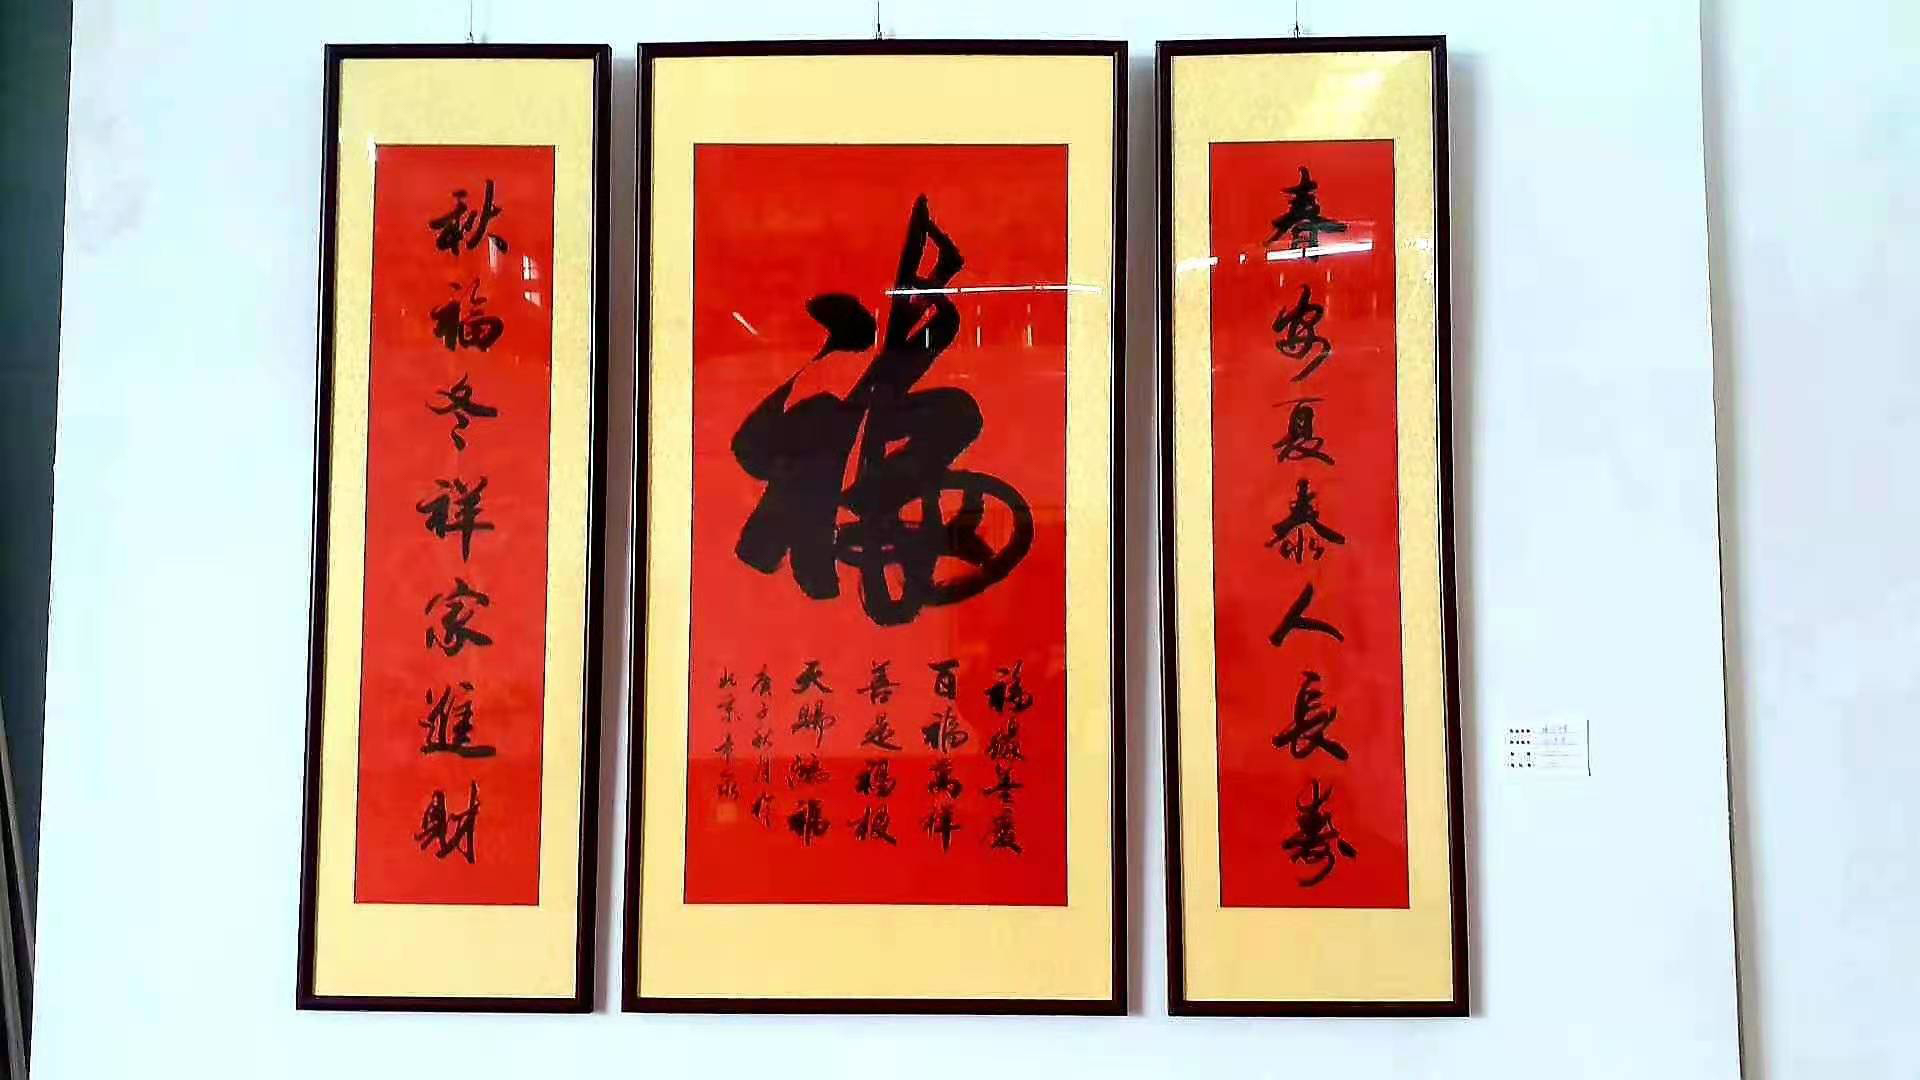 春安夏泰人長壽
福
福緣善慶
百福萬祥
善是福根
天賜鴻福
庚子秋月於
北京
秋福冬祥家進財